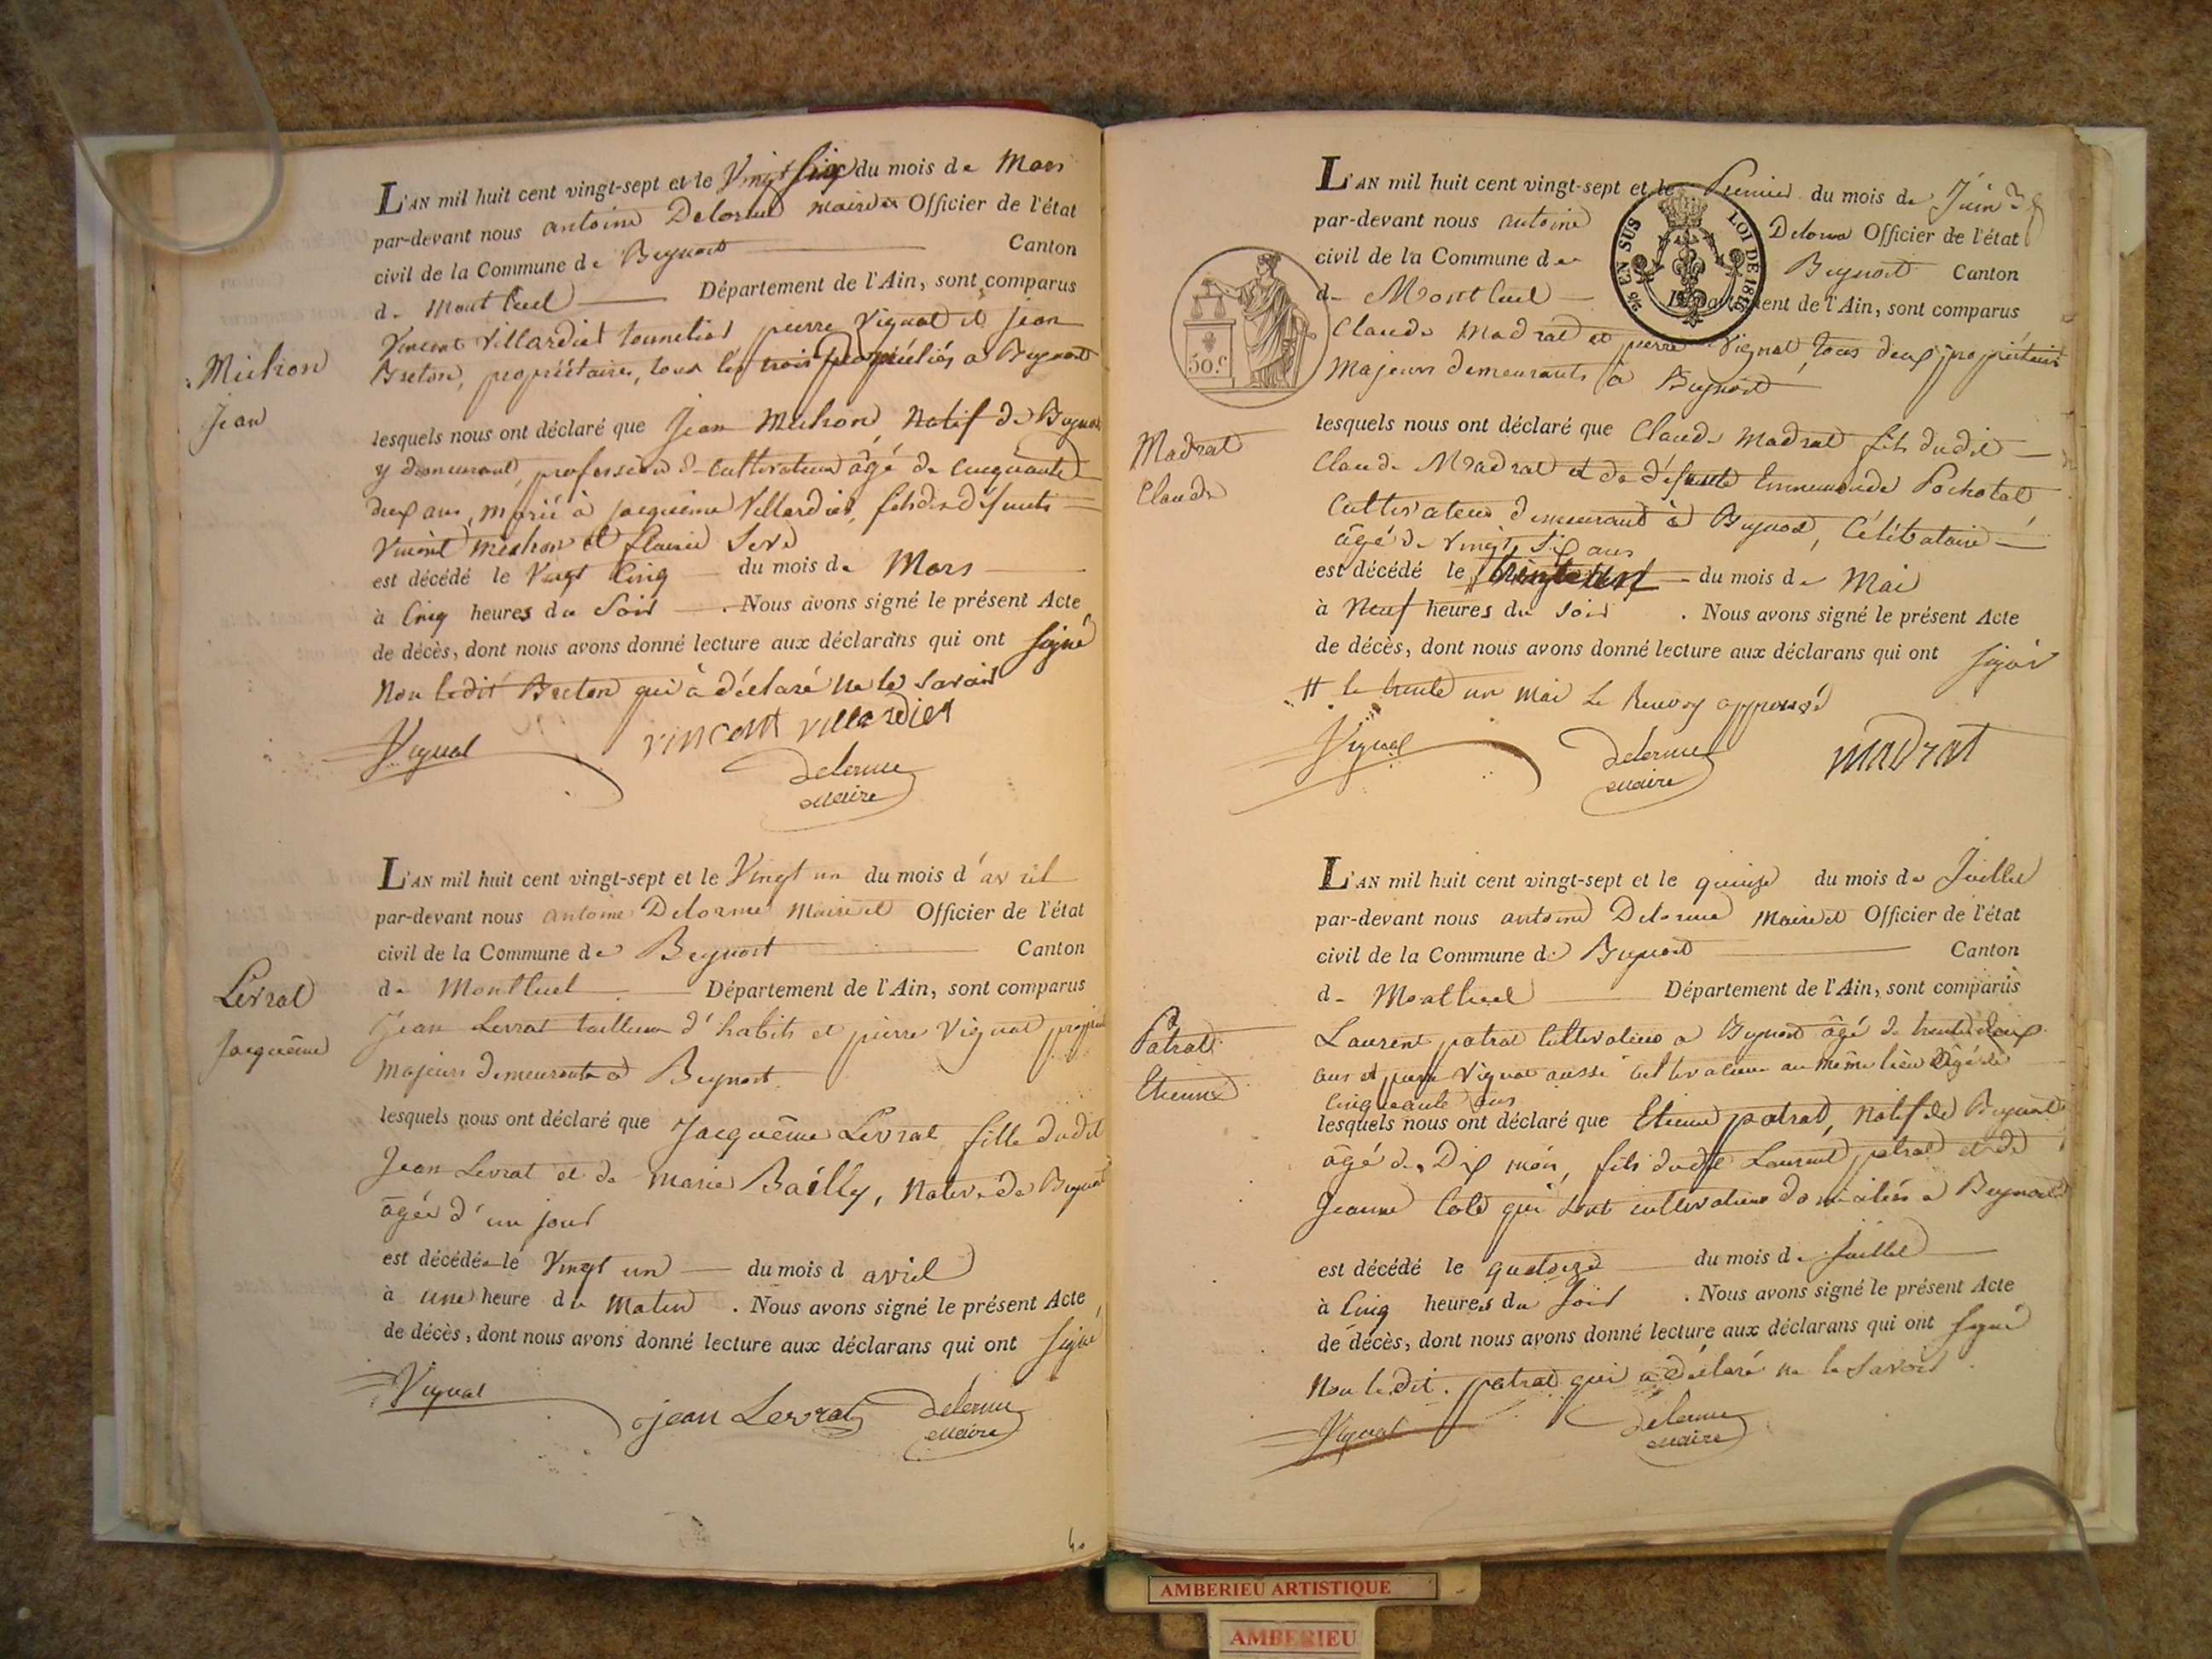 L'AN mil huit cent vingt-sept et le Vingt six du mois de Mars
par-devant nous antoine Delorme maire et Officier de l'état
civil de la Commune de Beynost Canton
de Montluel Département de l'Ain, sont comparus
Vincent Villardier tonnelier pierre Vignat et jean
Breton, propriétaires, tous les trois à Beynost
Michon
Jean
lesquels nous ont déclaré que Jean Michon, Natif de Beynost
y demeurant, profession de Cultivateur âgé de Cinquante
deux ans, marié à jacquême Villardier, fils des défunts
Vincent michon et
est décédé le Vingt Cinq du mois de Mars
à Cinq heures du Soir . Nous avons signé le présent Acte
de décès, dont nous avons donné lecture aux déclarans qui ont Signé
Non ledit Breton qui à déclaré ne le savoir
Vignat vincent villardier
delorme
maire
L'AN mil huit cent vingt-sept et le Vingt un du mois d'avril
par-devant nous antoine Delorme Maire et Officier de l'état
civil de la Commune de Beynost Canton
de Montluel Département de l'Ain, sont comparus
Jean Levrat tailleur d'habits et pierre Vignat
majeurs demeurants à Beynost
Levrat
Jacquême
lesquels nous ont déclaré que Jacquême Levrat fille dudit
Jean Levrat et de Marie Bailly, Native de Beynost
âgée d'un jour
est décédée le Vingt un du mois d avril
à une heure du Matin . Nous avons signé le présent Acte
de décès, dont nous avons donné lecture aux déclarans qui ont Signé
Vignat
jean Levrat delorme
maire
40
L'AN mil huit cent vingt-sept et le Premier du mois de Juin
par-devant nous antoine Delorme Officier de l'état
civil de la Commune de Beynost Canton
de Montluel Département de l'Ain, sont comparus
EN SUS LOI DE 1816
50.c
Claude Madrat et pierre Vignat, tous deux propriétaires
Majeurs demeurants à Beynost
Madrat
Claude
lesquels nous ont déclaré que Claude Madrat fils dudit
Claude Madrat et de défunte Ennemonde Pochotat
Cultivateur demeurant à Beynost, Célibataire
âgé de vingt six ans
est décédé le du mois de Mai
à Neuf heures du soir . Nous avons signé le présent Acte
de décès, dont nous avons donné lecture aux déclarans qui ont signé
# le trente un mai Le Renvoy approuvé
Vignat delorme maDrat
maire
L'AN mil huit cent vingt-sept et le quinze du mois de Juillet
par-devant nous antoine Delorme Maire et Officier de l'état
civil de la Commune de Beynost Canton
de Montluel Département de l'Ain, sont comparus
Laurent patrat Cultivateur a Beynost âgé de trente deux
ans et pierre Vignat aussi cultivateur au même lieu âgé de
Cinquante ans
Patrat
Etienne
lesquels nous ont déclaré que Etienne patrat, Natif de Beynost
âgé de Dix mois, fils dudit Laurent patrat et de
Jeanne qui sont cultivateurs domiciliés a Beynost
est décédé le quatorze du mois de Juillet
à Cinq heures du Soir . Nous avons signé le présent Acte
de décès, dont nous avons donné lecture aux déclarans qui ont Signé
Non le dit. patrat qui a déclaré ne le savoir
Vignat delorme
maire
AMBERIEU ARTISTIQUE
AMBERIEU